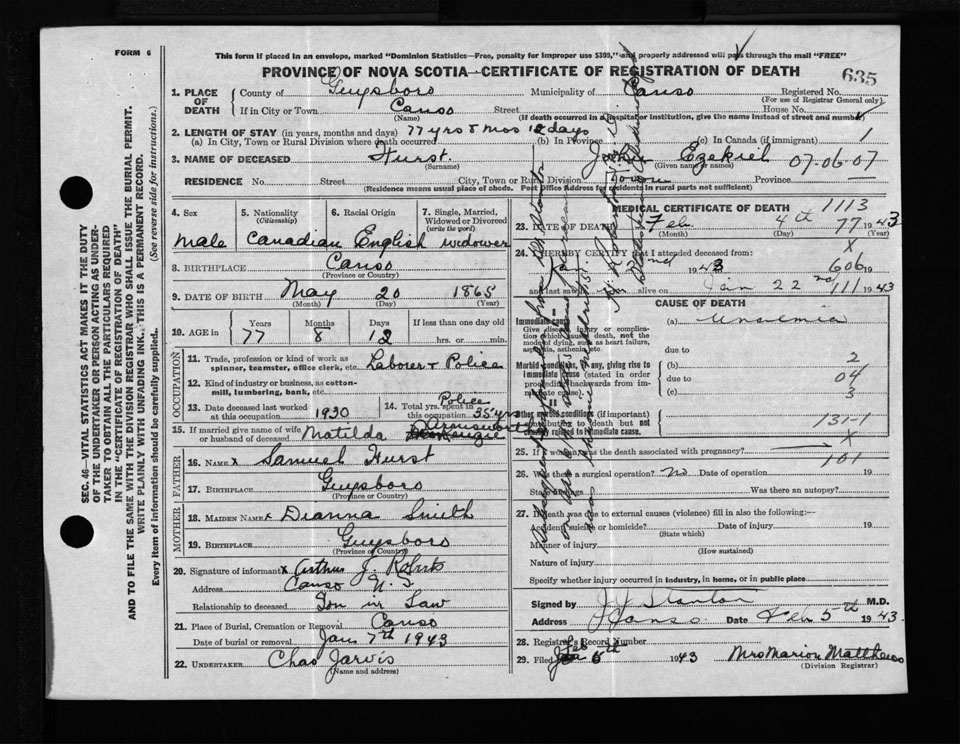 FORM 6
This form if placed in an envelope, marked "Dominion Statistics—Free, penalty for improper use $300," and properly addressed will pass through the mail "FREE"
PROVINCE OF NOVA SCOTIA—CERTIFICATE OF REGISTRATION OF DEATH
635
1. PLACE OF DEATH
County of Guysboro Municipality of Canso Registered No.
(For use of Registrar General only)
If in City or Town Canso Street House No.
(Name) (If death occurred in a hospital or institution, give the name instead of street and number)
2. LENGTH OF STAY (in years, months and days) 77 yrs 8 mos 12 days
(a) In City, Town or Rural Division where death occurred (b) In Province (c) In Canada (if immigrant) 1
3. NAME OF DECEASED Hurst. Ezekiel 07-06-07
(Surname) (Given name or names)
RESIDENCE No. Street City, Town or Rural Division Province
(Residence means usual place of abode. Post Office Address for residents in rural parts not sufficient)
4. Sex
male
5. Nationality (Citizenship)
Canadian
6. Racial Origin
English
7. Single, Married, Widowed or Divorced (write the word)
widower
8. BIRTHPLACE Canso
(Province or Country)
9. DATE OF BIRTH May 20 1865
(Month) (Day) (Year)
10. AGE in
Years Months Days If less than one day old
77 8 12 hrs. or min.
OCCUPATION
11. Trade, profession or kind of work as spinner, teamster, office clerk, etc. Laborer + Police
12. Kind of industry or business, as cotton-mill, lumbering, bank, etc.
13. Date deceased last worked at this occupation 1930
14. Total yrs. spent in this occupation Police 35 yrs
15. If married give name of wife or husband of deceased Matilda
FATHER
16. NAME x Samuel Hurst
17. BIRTHPLACE Guysboro
(Province or Country)
MOTHER
18. MAIDEN NAME x Dianna Smith
19. BIRTHPLACE Guysboro
(Province or Country)
20. Signature of informant x Arthur J. Roberts
Address Canso N.S.
Relationship to deceased Son in Law
21. Place of Burial, Cremation or Removal Canso
Date of burial or removal Jan 7th 1943
22. UNDERTAKER Chas Jarvis
(Name and address)
MEDICAL CERTIFICATE OF DEATH 1113
23. DATE OF DEATH Feb. 4th 77 1943
(Month) (Day) (Year)
24. I HEREBY CERTIFY that I attended deceased from: X
1943 606 19
and last saw alive on Jan 22nd 111 1943
CAUSE OF DEATH
Immediate cause
Give disease, injury or complication which caused death, not the mode of dying, such as heart failure, asphyxia, asthenia, etc.
(a) Uraemia
due to
Morbid conditions, if any, giving rise to immediate cause (stated in order proceeding backwards from immediate cause).
(b) 2
due to 04
(c) 3
Other morbid conditions (if important) contributing to death but not causally related to immediate cause.
131-1
X
25. If a woman, was the death associated with pregnancy? 101
26. Was there a surgical operation? no Date of operation 19
State findings Was there an autopsy?
27. If death was due to external causes (violence) fill in also the following:—
Accident, suicide or homicide? Date of injury 19
(State which)
Manner of injury
(How sustained)
Nature of injury
Specify whether injury occurred in industry, in home, or in public place
Signed by J J Stanton M.D.
Address Canso. Date Feb 5th 1943
28. Registrar's Record Number
29. Filed Feb 5th 1943 Mrs Marion Matthews
(Division Registrar)
SEC. 46—VITAL STATISTICS ACT MAKES IT THE DUTY
OF THE UNDERTAKER OR PERSON ACTING AS UNDER-
TAKER TO OBTAIN ALL THE PARTICULARS REQUIRED
IN THE "CERTIFICATE OF REGISTRATION OF DEATH"
AND TO FILE THE SAME WITH THE DIVISION REGISTRAR WHO SHALL ISSUE THE BURIAL PERMIT.
WRITE PLAINLY WITH UNFADING INK. THIS IS A PERMANENT RECORD.
Every item of information should be carefully supplied. (See reverse side for instructions.)